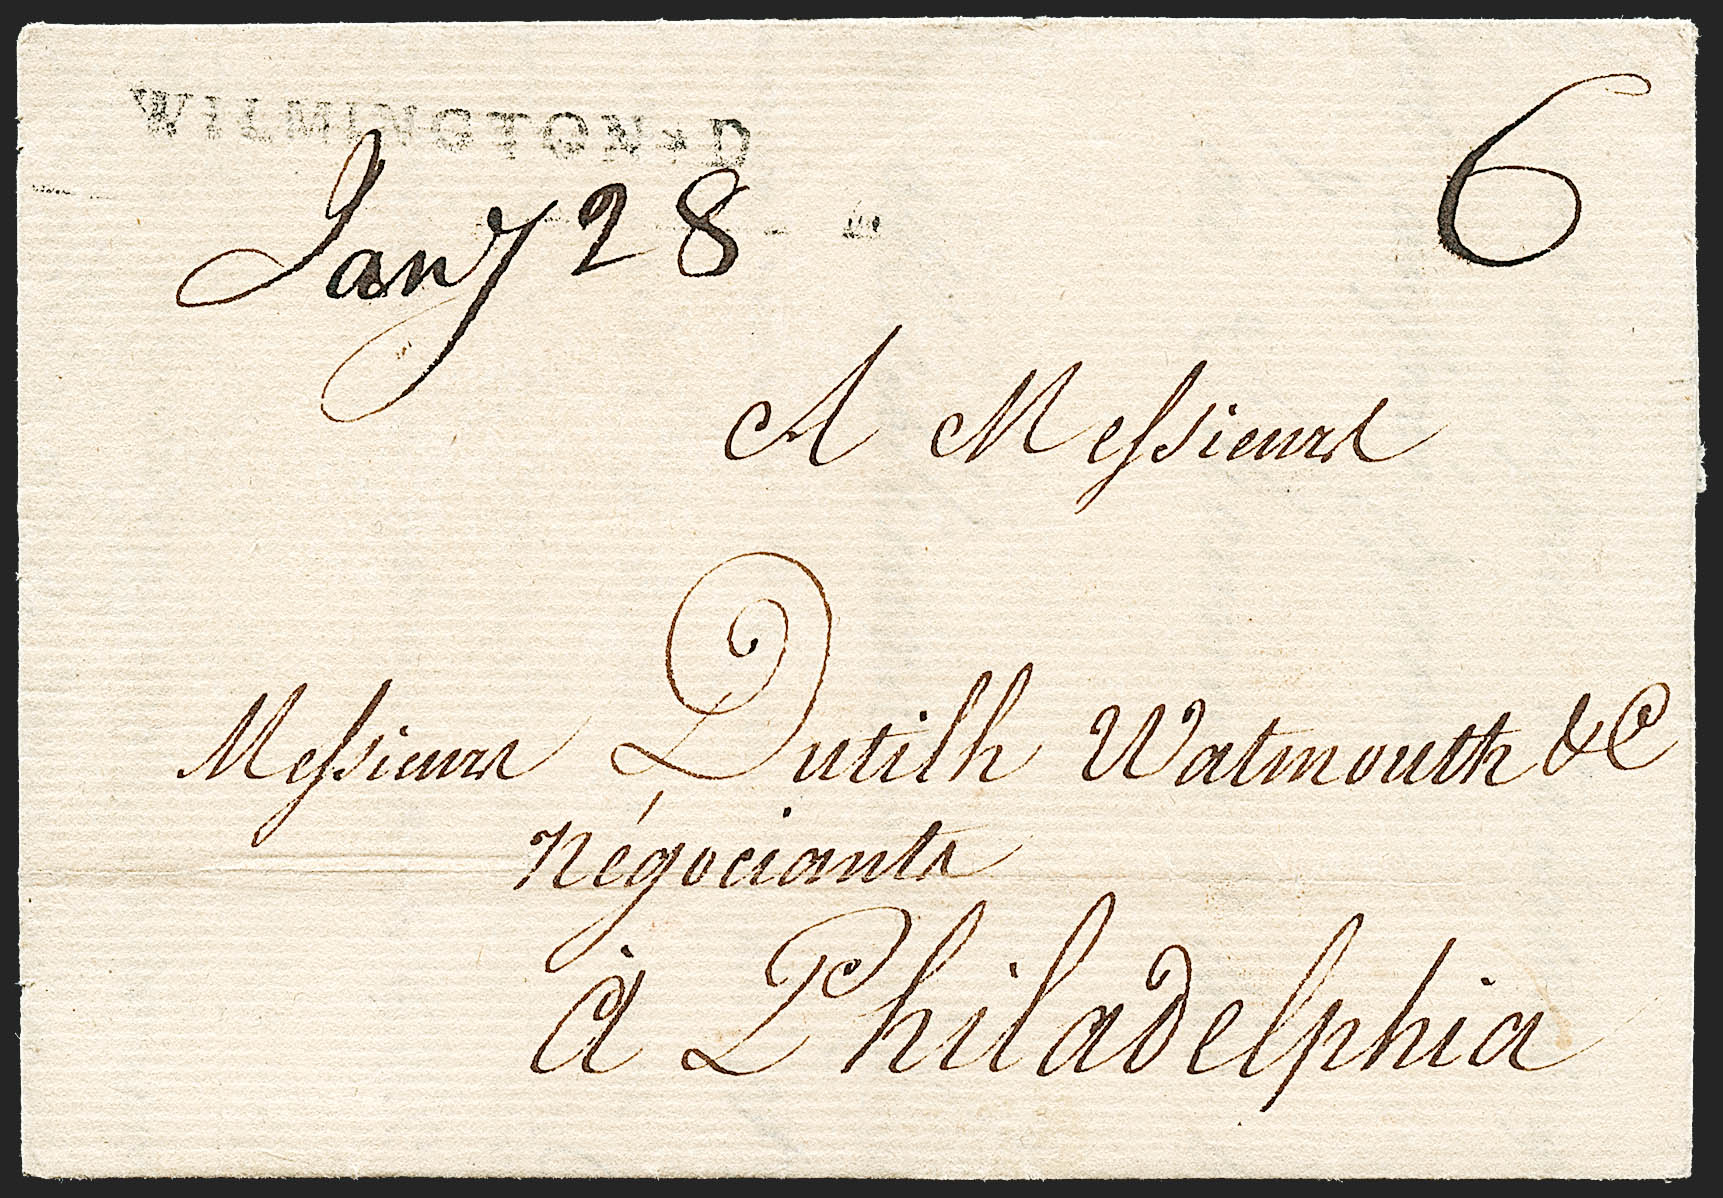 WILMINGTON*D
Jany 28
6
A Messieurs
Messieurs Dutilh Watmouth & C
Négociants
à Philadelphia